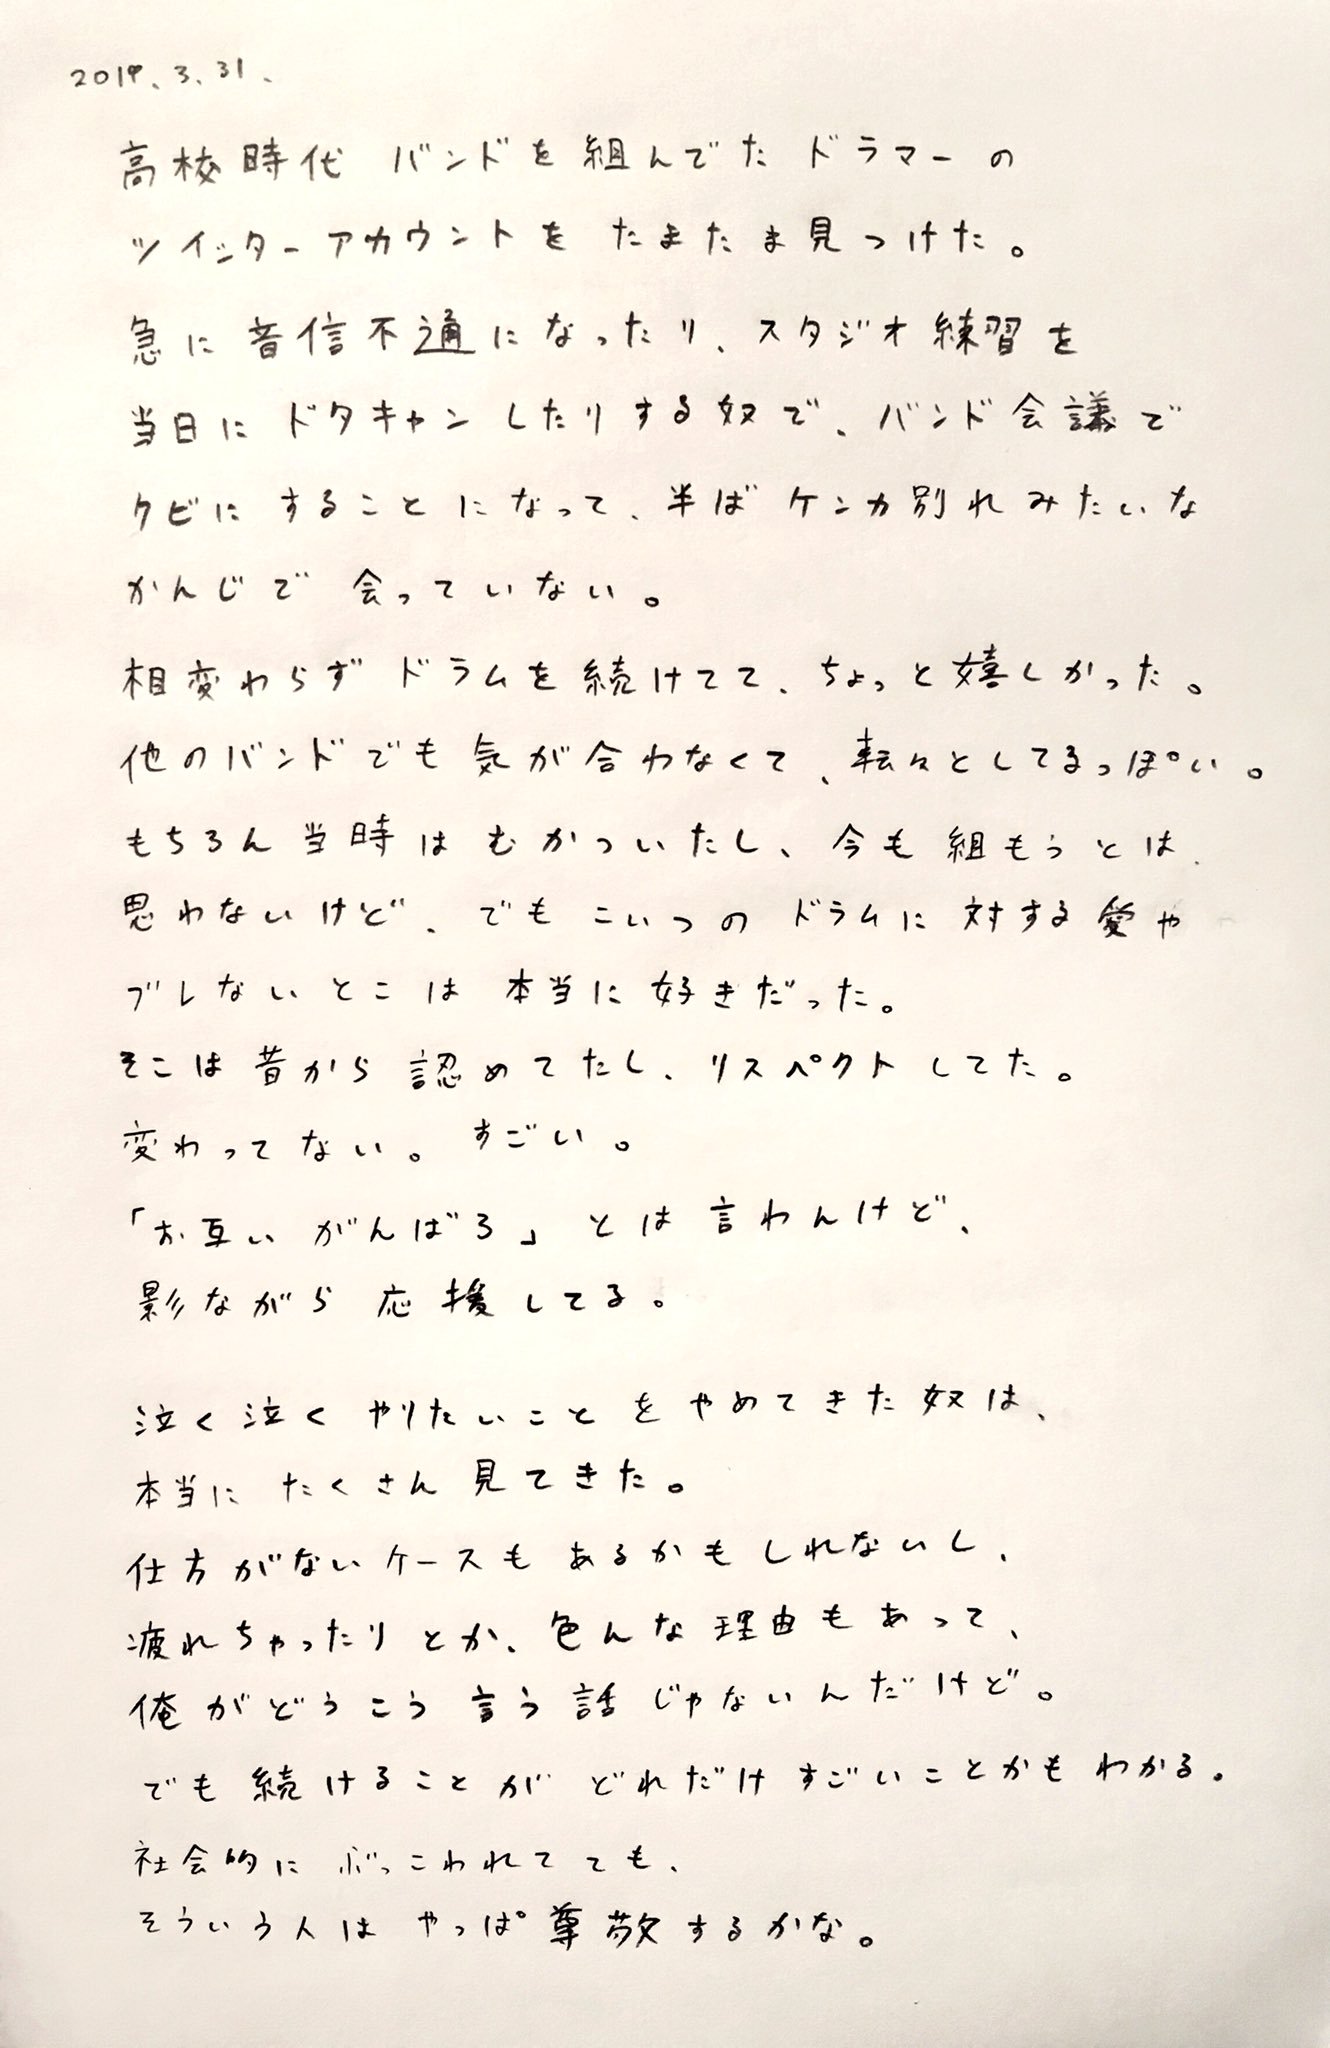 2019.3.31.
高校時代 バンドを組んでた ドラマーの
ツイッターアカウントを たまたま見つけた。
急に音信不通になったり、スタジオ練習を
当日にドタキャンしたりする奴で、バンド会議で
クビにすることになって、半ばケンカ別れみたいな
かんじで 会っていない。
相変わらず ドラムを続けてて、ちょっと嬉しかった。
他のバンドでも気が合わなくて、転々としてるっぽい。
もちろん当時はむかついたし、今も組もうとは
思わないけど、でもこいつのドラムに対する愛や
ブレないとこは 本当に好きだった。
そこは昔から認めてたし、リスペクトしてた。
変わってない。すごい。
「お互いがんばろ」とは言わんけど、
影ながら応援してる。
泣く泣くやりたいことをやめてきた奴は、
本当に たくさん見てきた。
仕方がないケースもあるかもしれないし、
疲れちゃったりとか、色んな理由もあって、
俺がどうこう言う話じゃないんだけど。
でも続けることがどれだけすごいことかもわかる。
社会的に ぶっこわれてても、
そういう人は やっぱ尊敬するかな。